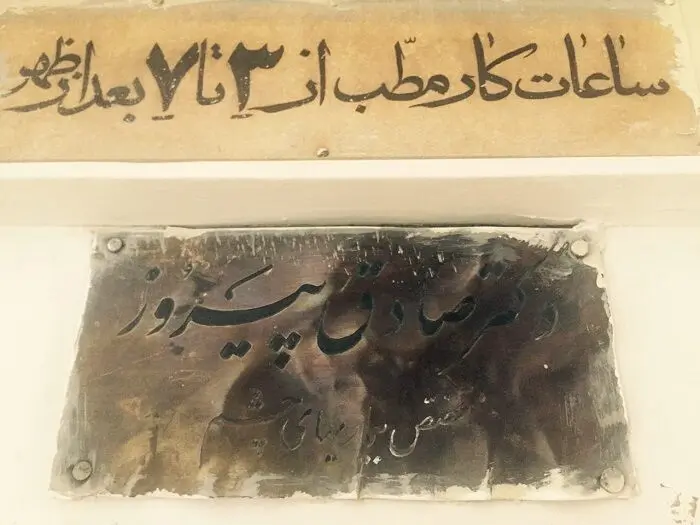 ساعات کار مطب از ۳ تا ۷ بعد از ظهر
دکتر صادق پیروز
متخصص بیماریهای چشم